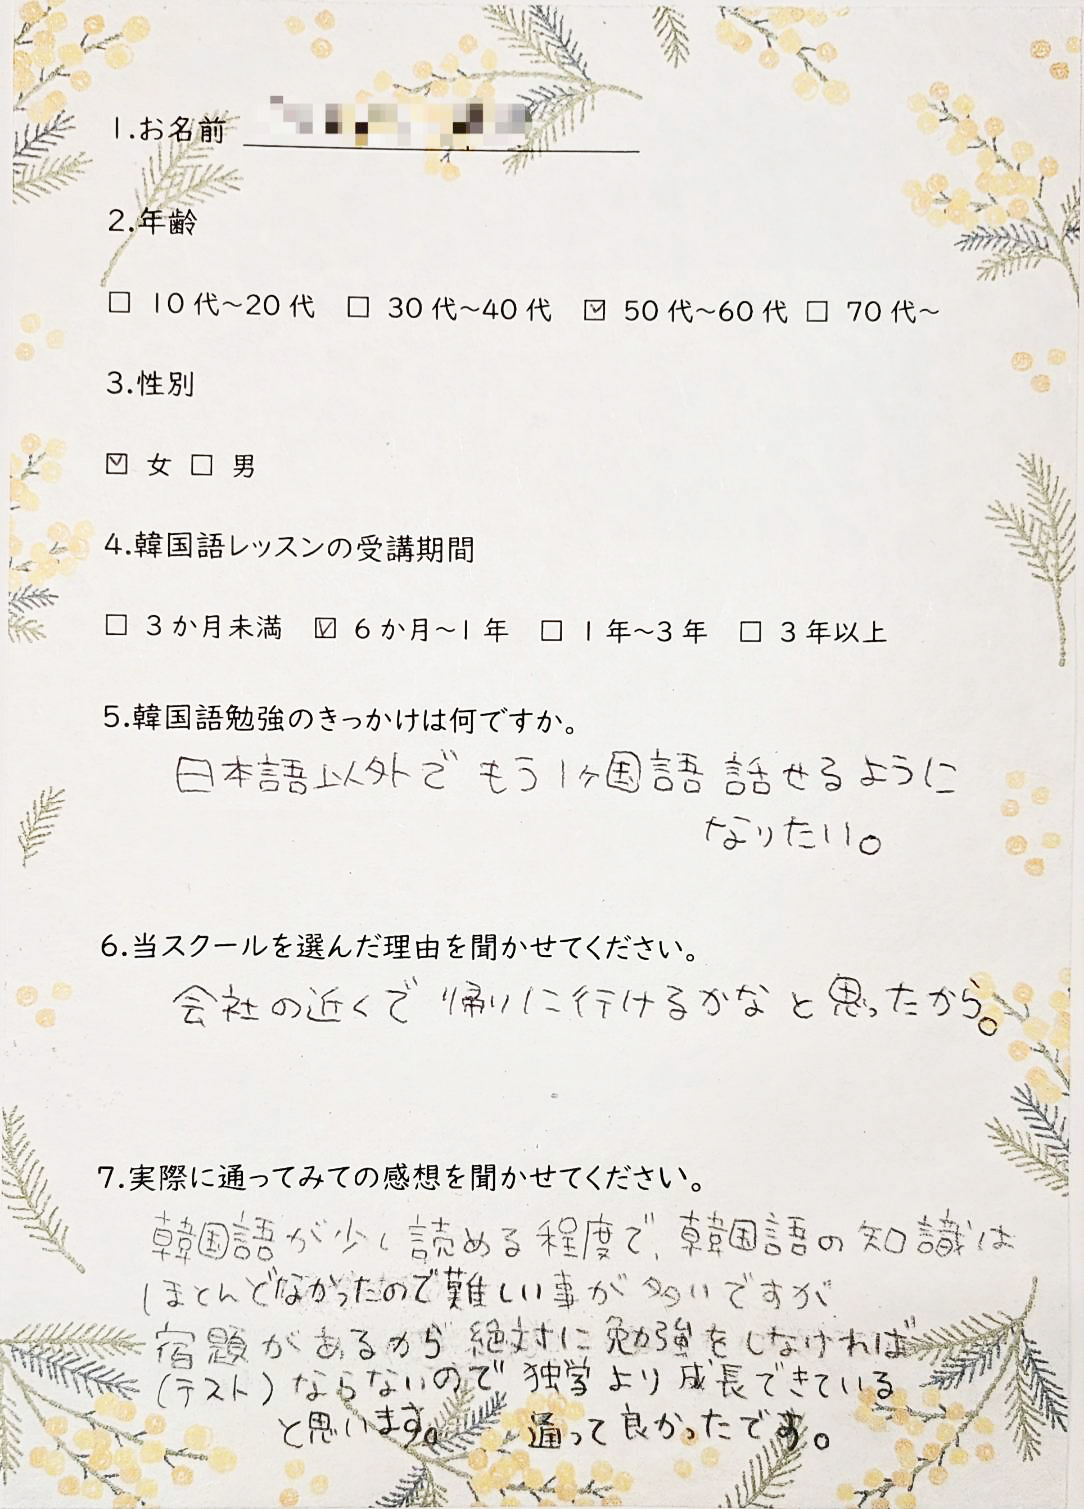 1.お名前
2.年齢
□ 10代～20代 □ 30代～40代 ☑ 50代～60代 □ 70代～
3.性別
☑ 女 □ 男
4.韓国語レッスンの受講期間
□ 3か月未満 ☑ 6か月～1年 □ 1年～3年 □ 3年以上
5.韓国語勉強のきっかけは何ですか。
日本語以外でもう1ヶ国語 話せるように
なりたい。
6.当スクールを選んだ理由を聞かせてください。
会社の近くで 帰りに行けるかなと思ったから。
7.実際に通ってみての感想を聞かせてください。
韓国語が少し読める程度で、韓国語の知識は
ほとんどなかったので難しい事が多いですが
宿題があるから 絶対に勉強をしなければ
(テスト)ならないので 独学より成長できている
と思います。 通って良かったです。